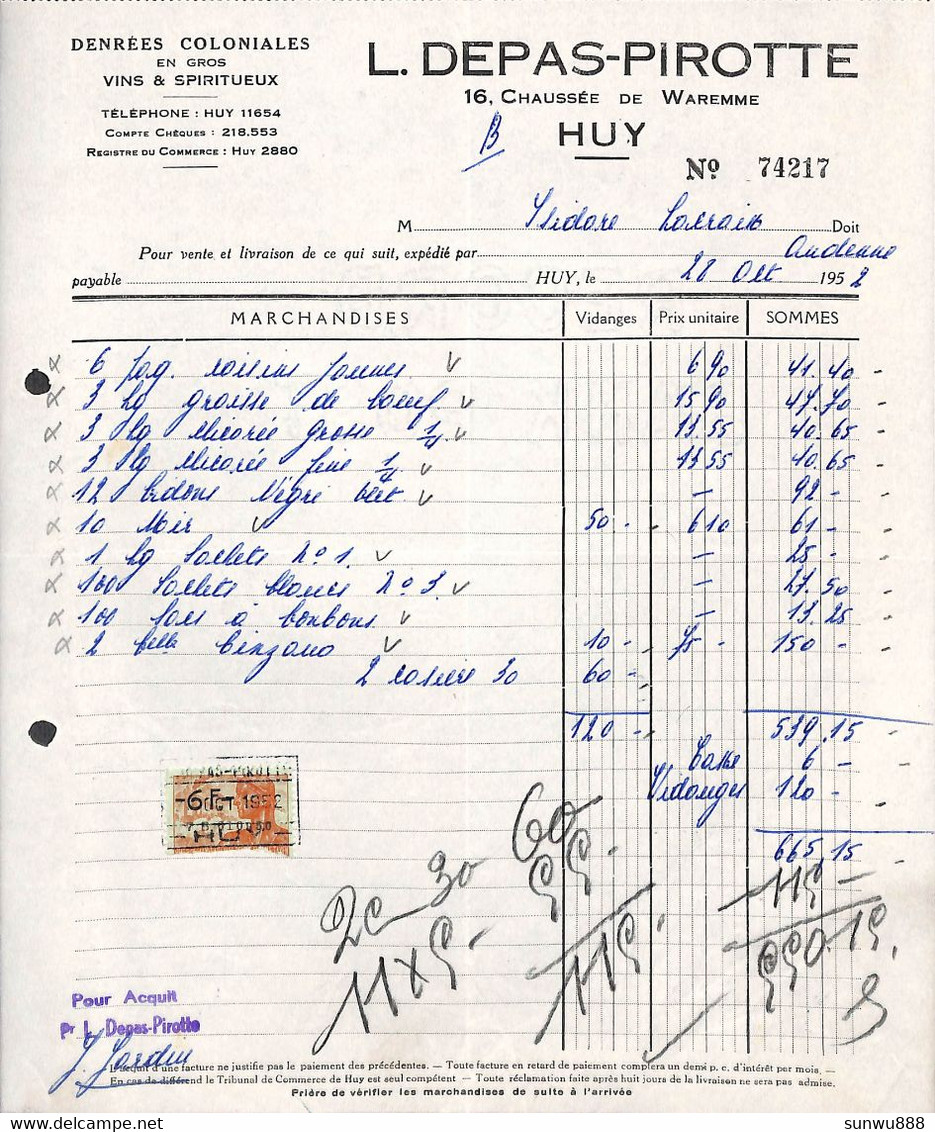 DENRÉES COLONIALES
EN GROS
VINS & SPIRITUEUX
TÉLÉPHONE : HUY 11654
COMPTE CHÈQUES : 218.553
REGISTRE DU COMMERCE : HUY 2880
L. DEPAS-PIROTTE
16, CHAUSSÉE DE WAREMME
HUY
B
Nº 74217
M Isidore Doit
Pour vente et livraison de ce qui suit, expédié par Andenne
payable HUY, le 28 Oct 1952
MARCHANDISES Vidanges Prix unitaire SOMMES
6 paq. raisins jaunes 6 90 41.40
3 kg graisse de boeuf 15 90 47.70
3 kg chicorée grosse 1/4 13.55 40.65
3 kg chicorée fine 1/4 13.55 40.65
12 bidons Négri - 92 -
10 50 - 610 61 -
1 kg sachets Nº 1. - 25 -
100 sachets blancs Nº 3. - 27.50
100 sacs à bonbons - 13.25
2 btlls Cinzano 10 - 75 - 150 -
2 casiers 30 60 -
120 - 539.15
Casse 6 -
Vidanges 120 -
665.15
6F
OCT 1952
HUY
2c - 30 60
55
11 x 5 - 115 -
115 -
550.15
Pour Acquit
Pr L. Depas-Pirotte
L'acquit d'une facture ne justifie pas le paiement des précédentes. — Toute facture en retard de paiement comptera un demi p. c. d'intérêt par mois. —
En cas de différend le Tribunal de Commerce de Huy est seul compétent — Toute réclamation faite après huit jours de la livraison ne sera pas admise.
Prière de vérifier les marchandises de suite à l'arrivée
sunwu888